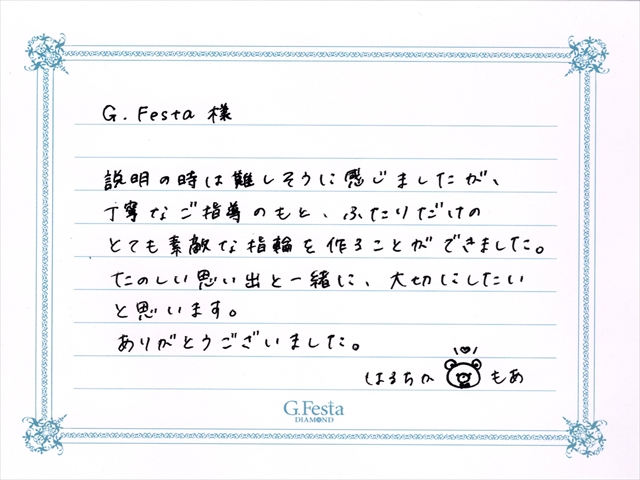 G.Festa 様
説明の時は難しそうに感じましたが、
丁寧なご指導のもと、ふたりだけの
とても素敵な指輪を作ることができました。
たのしい思い出と一緒に、大切にしたい
と思います。
ありがとうございました。
はるちか もあ
G.Festa
DIAMOND